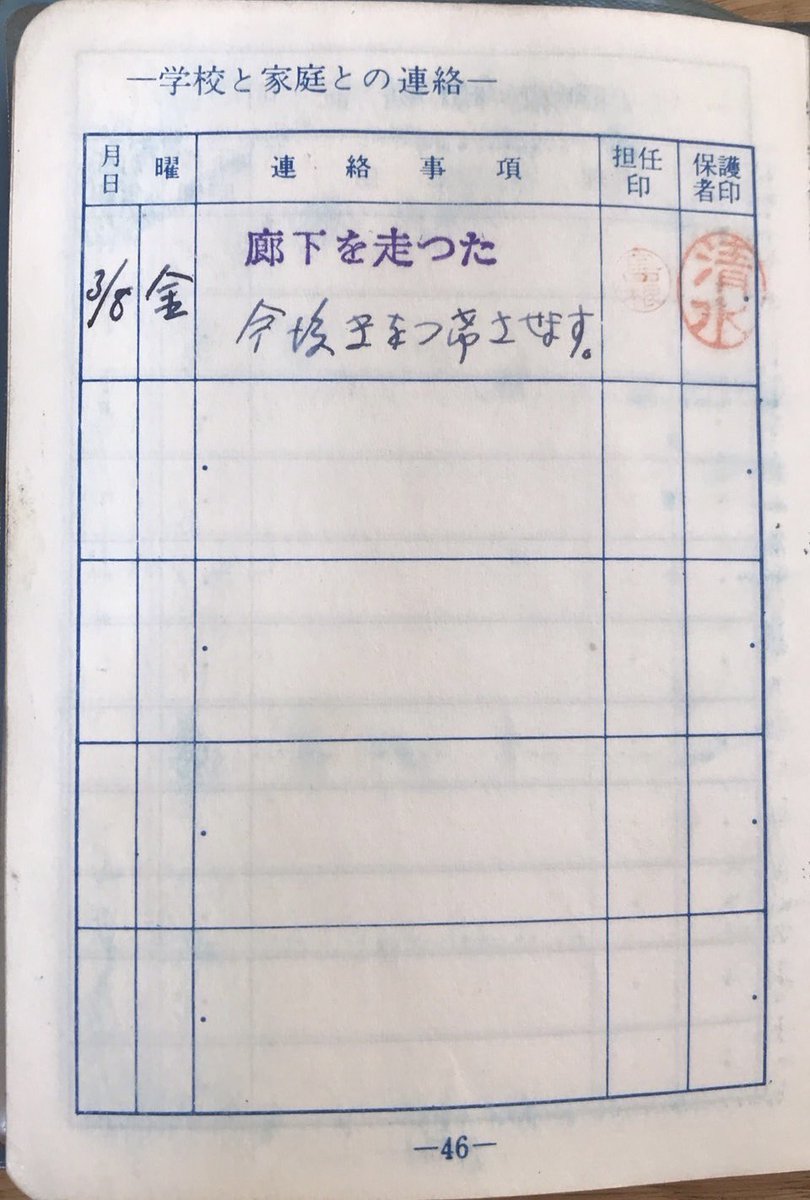 ―学校と家庭との連絡―
月日 曜 連絡事項 担任印 保護者印
廊下を走つた
3/8 金 清水
今後きをつ帯させます。
―46―